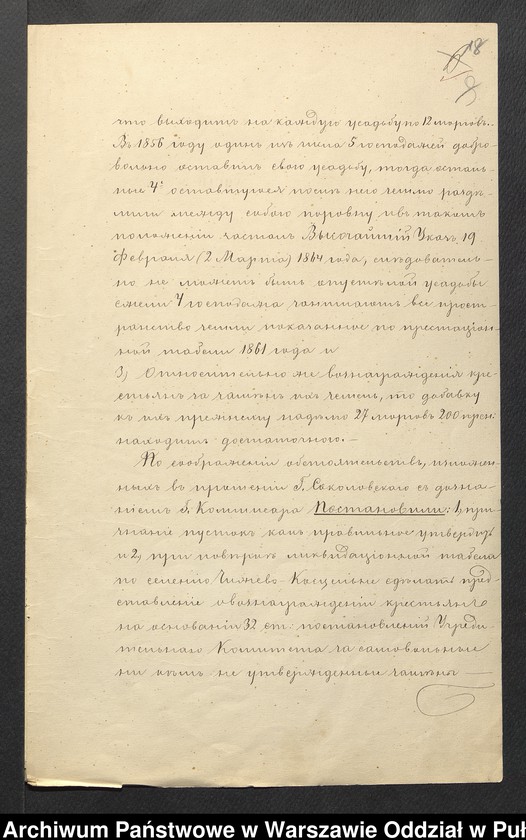 18
что выходитъ на каждую усадьбу по 12 морговъ..
Въ 1856 году одинъ изъ числа 5 господарей добро-
вольно оставилъ свою усадьбу, тогда осталь-
ные 4 оставшуюся послѣ него землю раздѣ-
лили между собою поровну и въ такомъ
положеніи засталъ Высочайшій Указъ 19
Февраля (2 Марта) 1864 года, слѣдователь-
но не можетъ быть опустѣлой усадьбы
ежели 4 господаря занимаютъ все прост-
ранство земли показанное по престаціон-
ной табели 1861 года и
3) Относительно же вознагражденія кре-
стьянъ за замѣнъ ихъ земель, то добавку
къ ихъ прежнему надѣлу 27 морговъ 200 прен:
находитъ достаточною. —
По соображеніи обстоятельствъ, изложен-
ныхъ въ прошеніи Г. Соколовскаго съ дозна-
ніемъ Г. Коммисара Постановили: 1, при
знаніе пустокъ какъ правильное утвердить
и 2, при повѣркѣ ликвидаціонной табели
по селенію Чижево-Косцельне сдѣлать пред-
ставленіе о вознагражденіи крестьянъ
на основаніи 32 ст: постановленій Учреди-
тельнаго Комитета за самовольные
ни кѣмъ не утвержденные замѣны —
Archiwum Państwowe w Warszawie Oddział w Puł